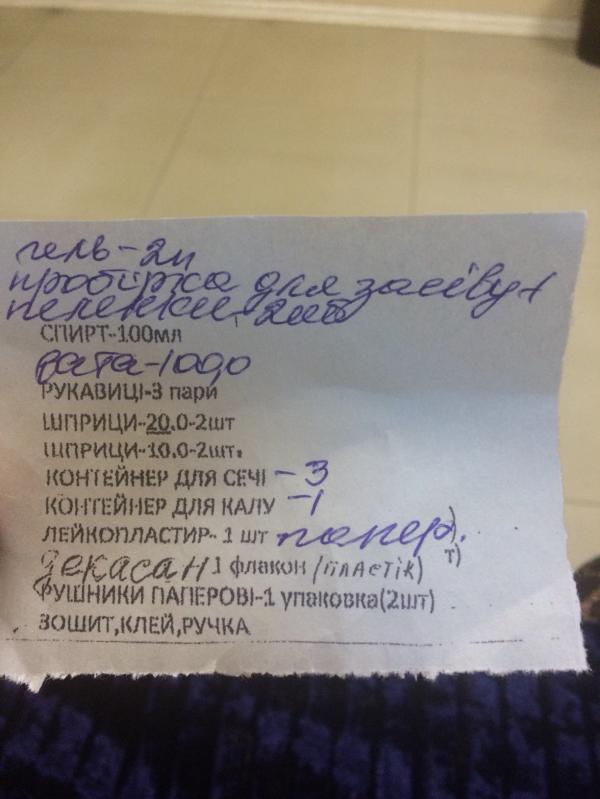 гель-2п
пробірка для засіву-1
пелюшки-2шт
СПИРТ-100мл
вата-100,0
РУКАВИЦІ-3 пари
ШПРИЦИ-20.0-2шт
ШПРИЦИ-10.0-2шт.
КОНТЕЙНЕР ДЛЯ СЕЧІ -3
КОНТЕЙНЕР ДЛЯ КАЛУ -1
ЛЕЙКОПЛАСТИР- 1 шт папер. )
декасан 1 флакон /пластік) т)
РУШНИКИ ПАПЕРОВІ-1 упаковка(2шт)
ЗОШИТ,КЛЕЙ,РУЧКА